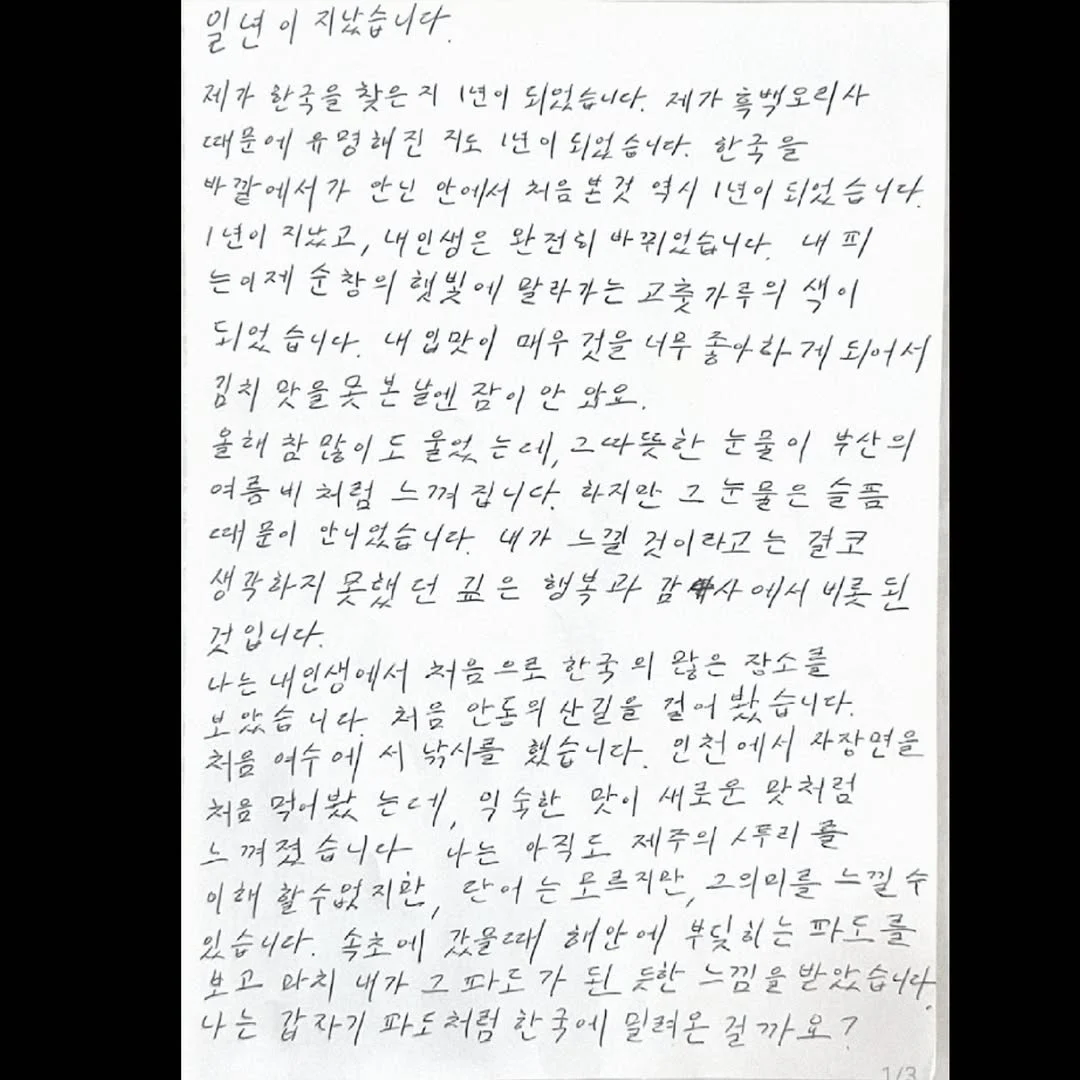 일년이 지났습니다.
제가 한국을 찾은 지 1년이 되었습니다. 제가 흑백요리사
때문에 유명해진 지도 1년이 되었습니다. 한국을
바깥에서가 안닌 안에서 처음 본 것 역시 1년이 되었습니다.
1년이 지났고, 내 인생은 완전히 바뀌었습니다. 내 피
는 이제 순창의 햇빛에 말라가는 고춧가루의 색이
되었습니다. 내 입맛이 매우 것을 너무 좋아하게 되어서
김치 맛을 못 본 날엔 잠이 안 와요.
올해 참 많이도 울었는데, 그 따뜻한 눈물이 부산의
여름비처럼 느껴집니다. 하지만 그 눈물은 슬픔
때문이 안니었습니다. 내가 느낄 것이라고는 결코
생각하지 못했던 깊은 행복과 감사에서 비롯된
것입니다.
나는 내 인생에서 처음으로 한국의 많은 장소를
보았습니다. 처음 안동의 산길을 걸어봤습니다.
처음 여수에서 낚시를 했습니다. 인천에서 자장면을
처음 먹어봤는데, 익숙한 맛이 새로운 맛처럼
느껴졌습니다 나는 아직도 제주의 사투리를
이해 할 수 없지만, 단어는 모르지만, 그 의미를 느낄 수
있습니다. 속초에 갔을때 해안에 부딪히는 파도를
보고 마치 내가 그 파도가 된 듯한 느낌을 받았습니다.
나는 갑자기 파도처럼 한국에 밀려온 걸까요?
1/3